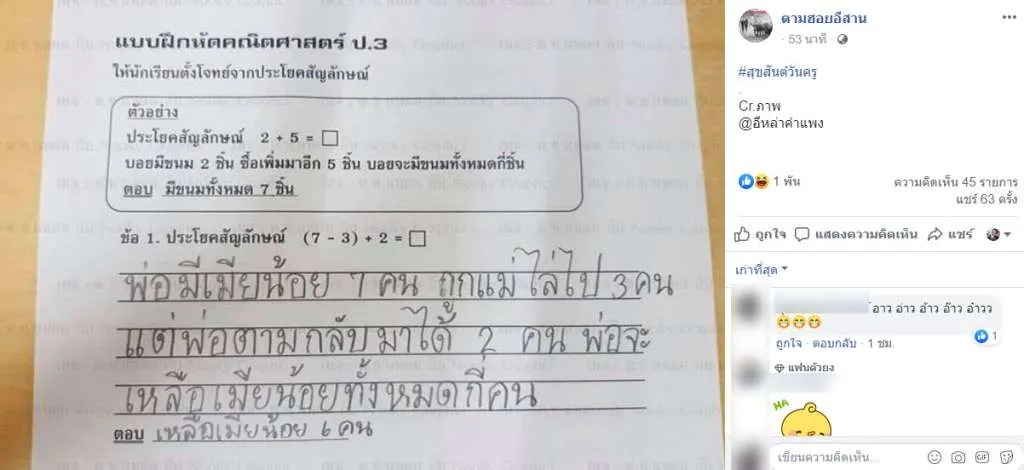 แบบฝึกหัดคณิตศาสตร์ ป.3
ให้นักเรียนตั้งโจทย์จากประโยคสัญลักษณ์
ตัวอย่าง
ประโยคสัญลักษณ์ 2 + 5 = □
บอยมีขนม 2 ชิ้น ซื้อเพิ่มมาอีก 5 ชิ้น บอยจะมีขนมทั้งหมดกี่ชิ้น
ตอบ มีขนมทั้งหมด 7 ชิ้น
ข้อ 1. ประโยคสัญลักษณ์ (7 - 3) + 2 = □
พ่อมีเมียน้อย 7 คน ถูกแม่ไล่ไป 3 คน
แต่พ่อตามกลับมาได้ 2 คน พ่อจะ
เหลือเมียน้อยทั้งหมดกี่คน
ตอบ เหลือเมียน้อย 6 คน
ตามฮอยอีสาน
53 นาที ·
#สุขสันต์วันครู
.
Cr.ภาพ
@อีหล่าคำแพง
1 พัน
ความคิดเห็น 45 รายการ
แชร์ 63 ครั้ง
ถูกใจ แสดงความคิดเห็น แชร์
เก่าที่สุด
อ้าว อ่าว อ้าว อ๊าว อ๋าวว
1
ถูกใจ · ตอบกลับ · 1 ชม.
แฟนตัวยง
HA
เขียนความคิดเห็น...
GIF